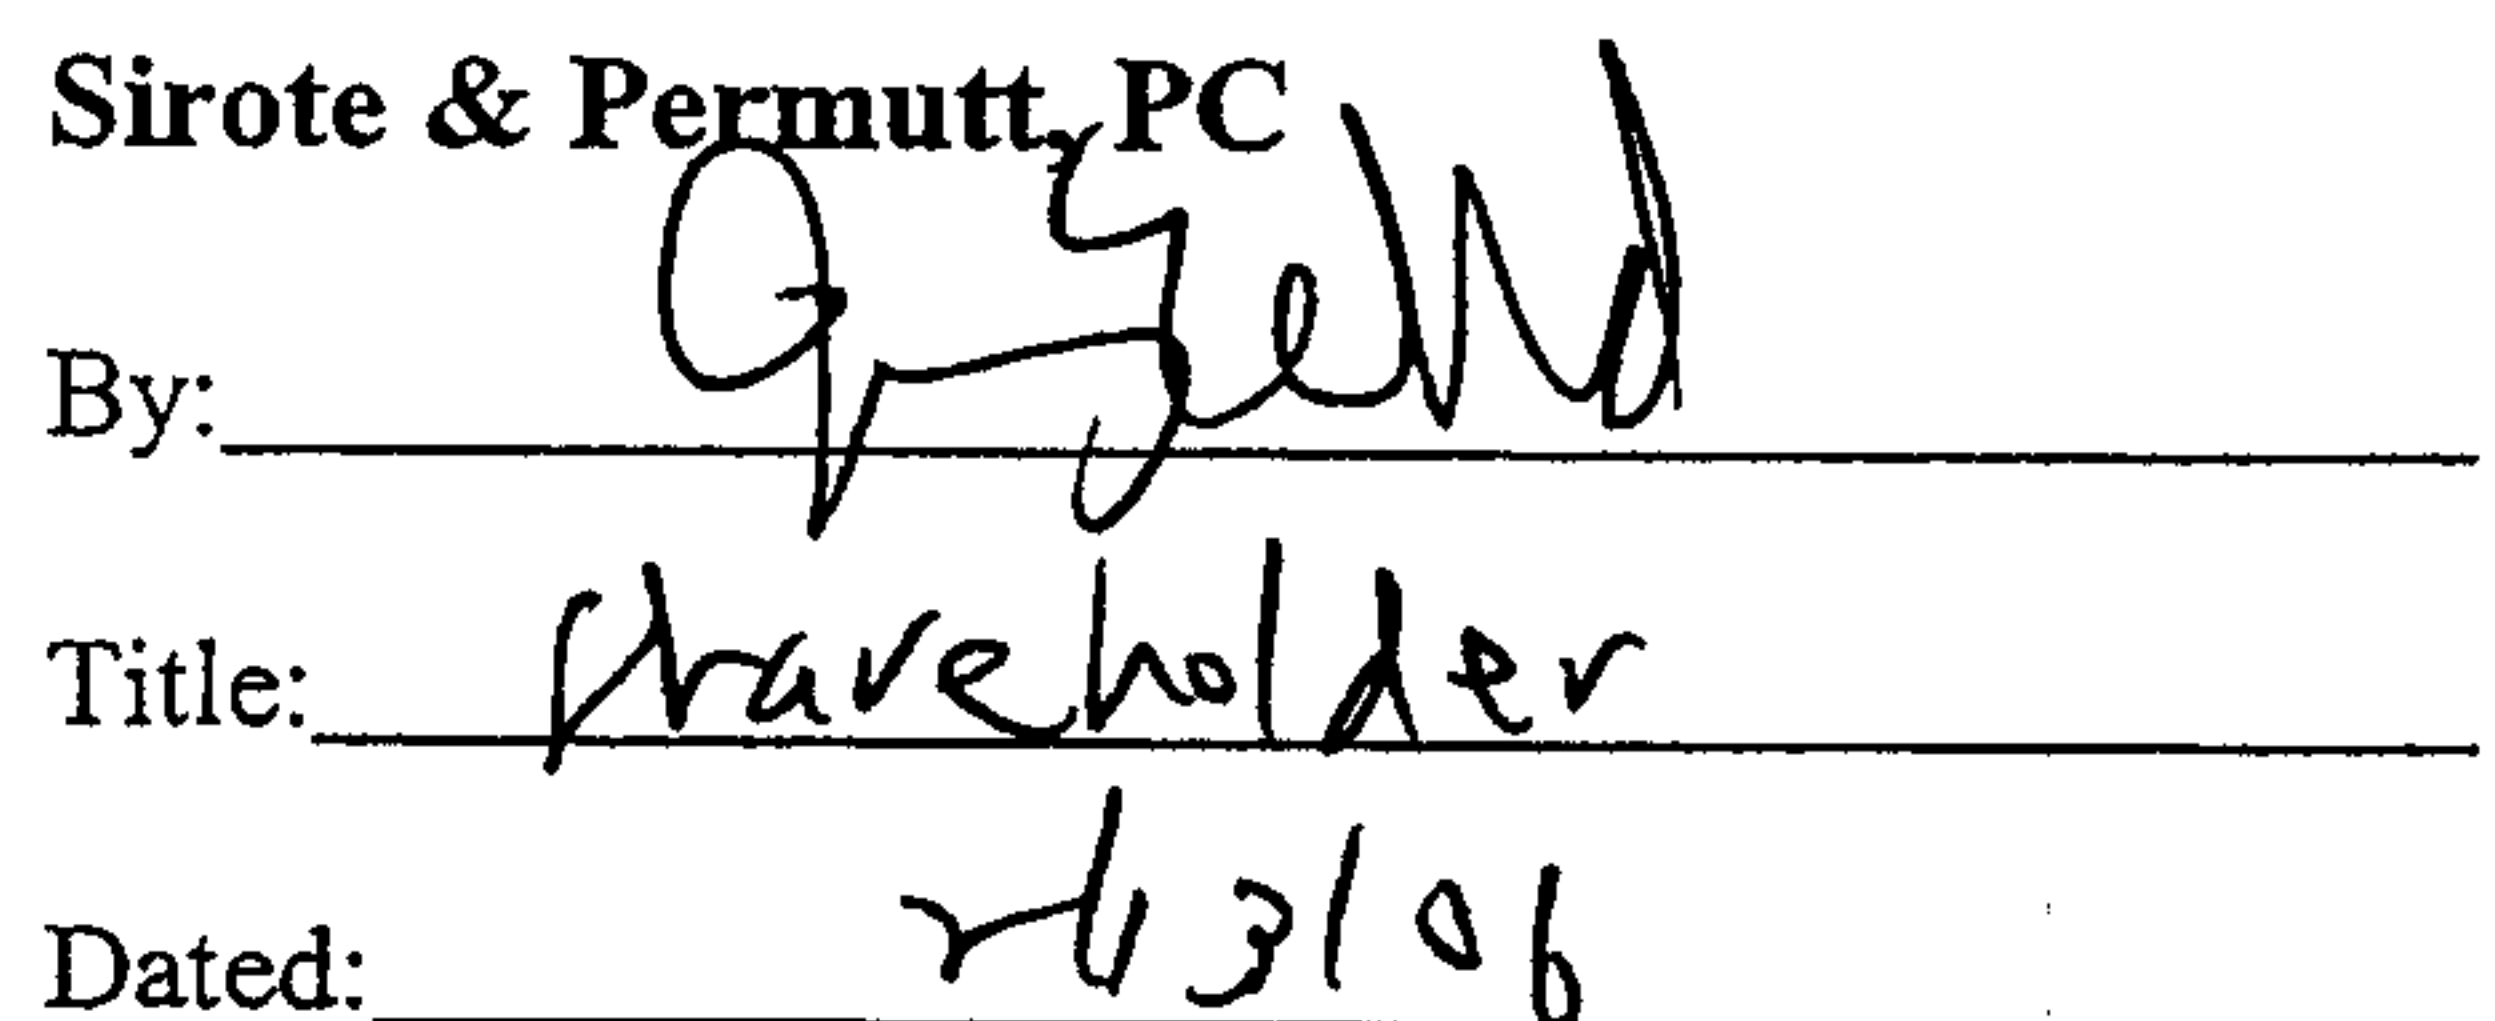 Sirote & Permutt, PC
By:
Title: shareholder
Dated: